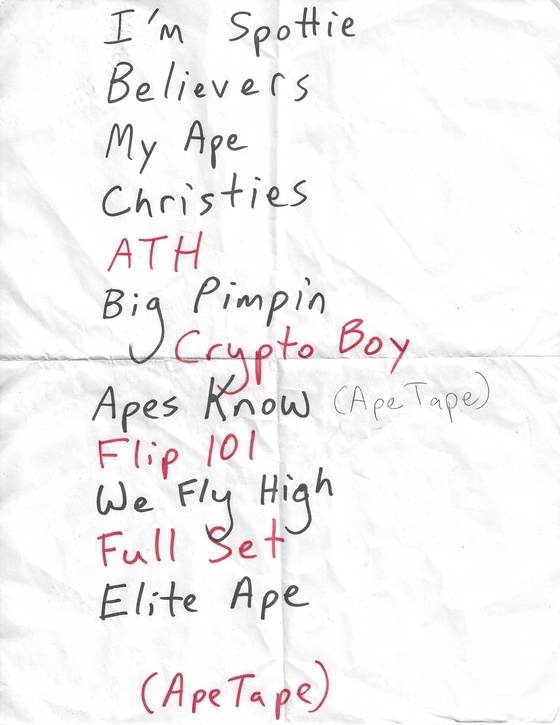 I'm Spottie
Believers
My Ape
Christies
ATH
Big Pimpin
Crypto Boy
Apes Know (Ape Tape)
Flip 101
We Fly High
Full Set
Elite Ape
(Ape Tape)